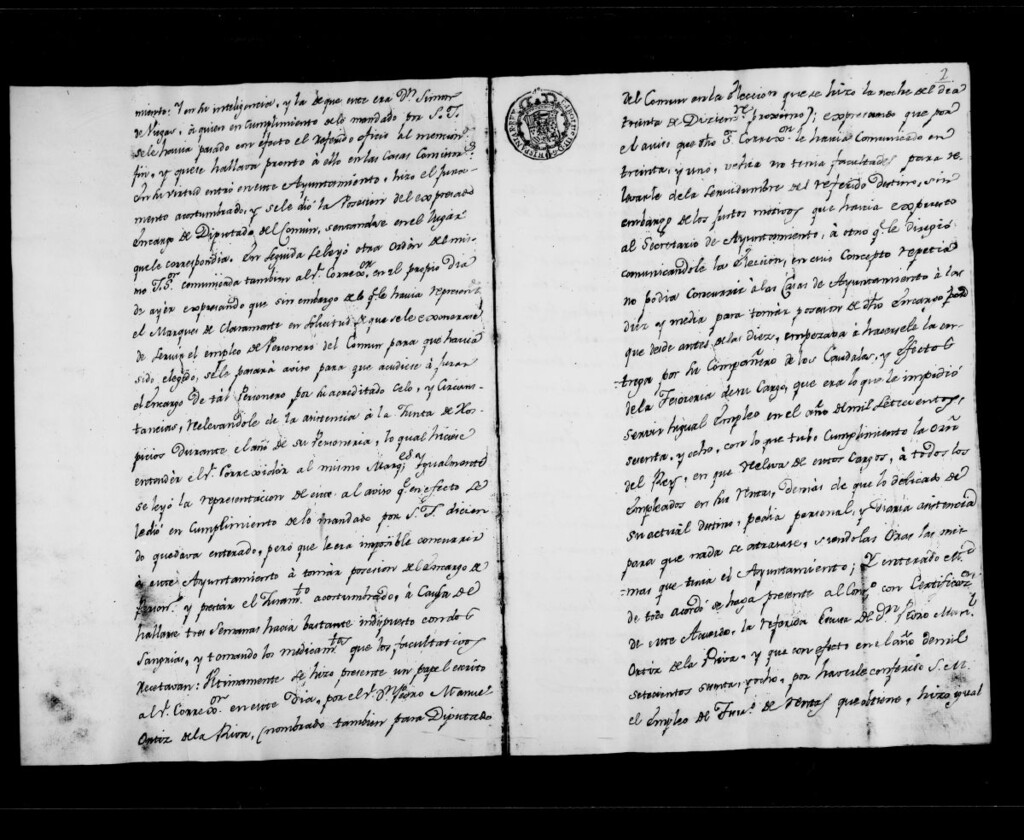 miento: Y en su inteligencia, y la de que este era Dn. Simon
de Viegas, à quien en Cumplimiento de lo mandado por S.I.
se le havia pasado con efecto el referido oficio al mencion.do
fin, y que se hallava pronto à ello en las Casas Consistor.s
En su virtud entró en este Ayuntamiento, hizo el Jura-
mento acostumbrado, y se le dió la Posesion del expresado
Encargo de Diputado del Comun, sentandose en el lugar
que le correspondia. En seguida se leyó otra Orden del mis-
mo T.S. comunicada tambien al Sr. Correxor. en el propio dia
de ayer expresando que sin embargo de lo q.e le havia represent.do
el Marques de Claramonte en solicitud de que se le exonerase
de servir el empleo de Personero del Comun para que havia
sido elegido, se le pasara aviso para que acudiese à Jurar
el Encargo de tal Personero por su acreditado Celo, y Circuns-
tancias, relevandole de la asistencia à la Junta de Hos-
picios durante el año de su Personeria, lo qual hiciese
entender el Sr. Correxidor al mismo Marq.es y Igualmente
se leyó la representacion de este al aviso q.e en efecto se
le dió en Cumplimiento de lo mandado por S.I. dicien
do quedava enterado, pero que le era imposible concurrir
à este Ayuntamiento à tomar posesion del encargo de
Person.o y prestar el Juram.to acostumbrado, à Causa de
hallarse tres semanas hacia bastante indispuesto con dos
Sangrias, y tomando los medicam.tos que los facultativos
recetavan: Ultimamente se hizo presente un papel escrito
al Sr. Correxor. en este dia, por el Sr. Dn. Pedro Manuel
Ortiz de la Riva, (nombrado tambien para Diputado
2
del Comun en la Eleccion que se hizo la noche del dia
treinta de Diziem.re proximo); expresando que por
el aviso que dho Sr. Correxor. le havia Comunicado en
treinta, y uno, veia no tenia facultades para re-
levarle de la Servidumbre del referido destino, sin
embargo de los justos motivos que havia expuesto
al Secretario de Ayuntamiento, à otro q.e le dirigió
comunicandole la Eleccion, en cuio Concepto repetia
no podia Concurrir à las Casas de Ayuntamiento à las
diez y media para tomar posesion de dho Encargo
que desde antes de las diez, empezava à hacersele la en-
trega por su Compañero de los Caudales, y efectos
de la Tesoreria de su Cargo, que era lo que le impidió
servir igual Empleo en el año de mil setecientos,
sesenta, y ocho, con lo que tubo Cumplimiento la Orn
del Rey, en que releva de estos Cargos, à todos los
Empleados en su renta, demas de que lo delicado de
su actual destino, pedia personal, y diaria asistencia
para que nada se atrasase, siendo las Oras las mis-
mas que tenia el Ayuntamiento; Y enterado Md
de todo acordó se haga presente al Con.o con Certificaz.on
de este Acuerdo, la referida Escusa de Dn. Pedro Man.l
Ortiz de la Riva, y que con efecto en el año de mil
setecientos sesenta, y ocho, por haversele conferido S.M.
el Empleo de Tesor.o de rentas que obtiene, hizo igual